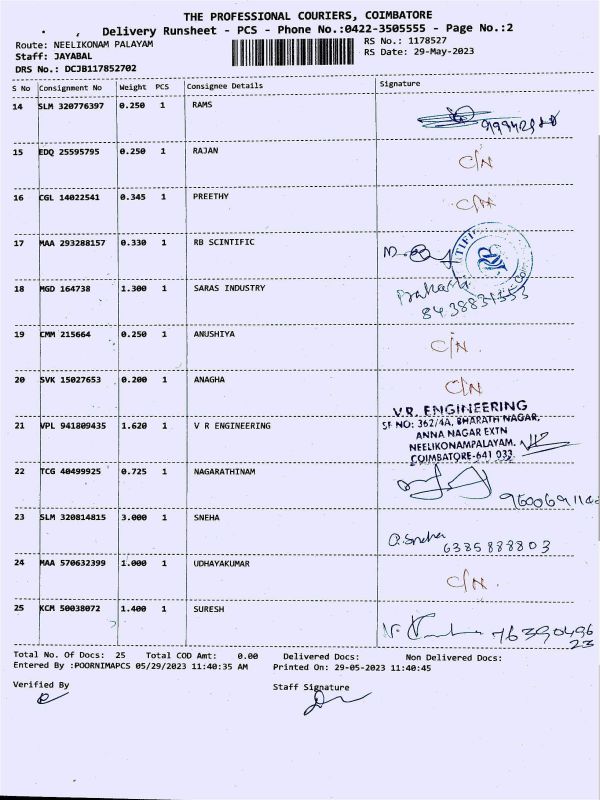 THE PROFESSIONAL COURIERS, COIMBATORE
Delivery Runsheet - PCS - Phone No.:0422-3505555 - Page No.:2
Route: NEELIKONAM PALAYAM
RS No.: 1178527
Staff: JAYABAL
RS Date: 29-May-2023
DRS No.: DCJB117852702
S No Consignment No Weight PCS Consignee Details Signature
14 SLM 320776397 0.250 1 RAMS
15 EDQ 25595795 0.250 1 RAJAN C/N
16 CGL 14022541 0.345 1 PREETHY C/N
17 MAA 293288157 0.330 1 RB SCINTIFIC
18 MGD 164738 1.300 1 SARAS INDUSTRY Prakash
8438831553
19 CMM 215664 0.250 1 ANUSHIYA C/N.
20 SVK 15027653 0.200 1 ANAGHA C/N
V.R. ENGINEERING
21 VPL 941809435 1.620 1 V R ENGINEERING SF NO: 362/4A, BHARATH NAGAR,
ANNA NAGAR EXTN
NEELIKONAMPALAYAM.
COIMBATORE-641 033.
22 TCG 40499925 0.725 1 NAGARATHINAM
23 SLM 320814815 3.000 1 SNEHA
Sneha
6385888803
24 MAA 570632399 1.000 1 UDHAYAKUMAR C/N.
25 KCM 50038072 1.400 1 SURESH
7639049623
Total No. Of Docs: 25 Total COD Amt: 0.00 Delivered Docs: Non Delivered Docs:
Entered By :POORNIMAPCS 05/29/2023 11:40:35 AM Printed On: 29-05-2023 11:40:45
Verified By Staff Signature